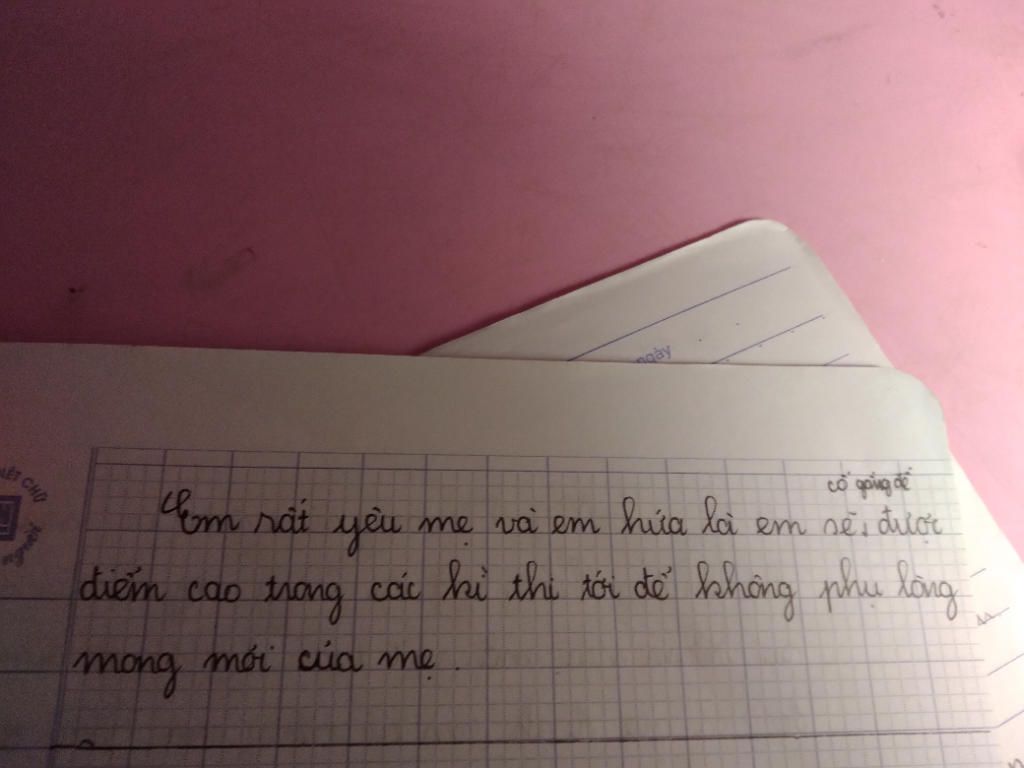 ngày
NÉT CHỮ
cố gắng để
Em rất yêu mẹ và em hứa là em sẽ được
điểm cao trong các kì thi tới để không phụ lòng
mong mới của mẹ.